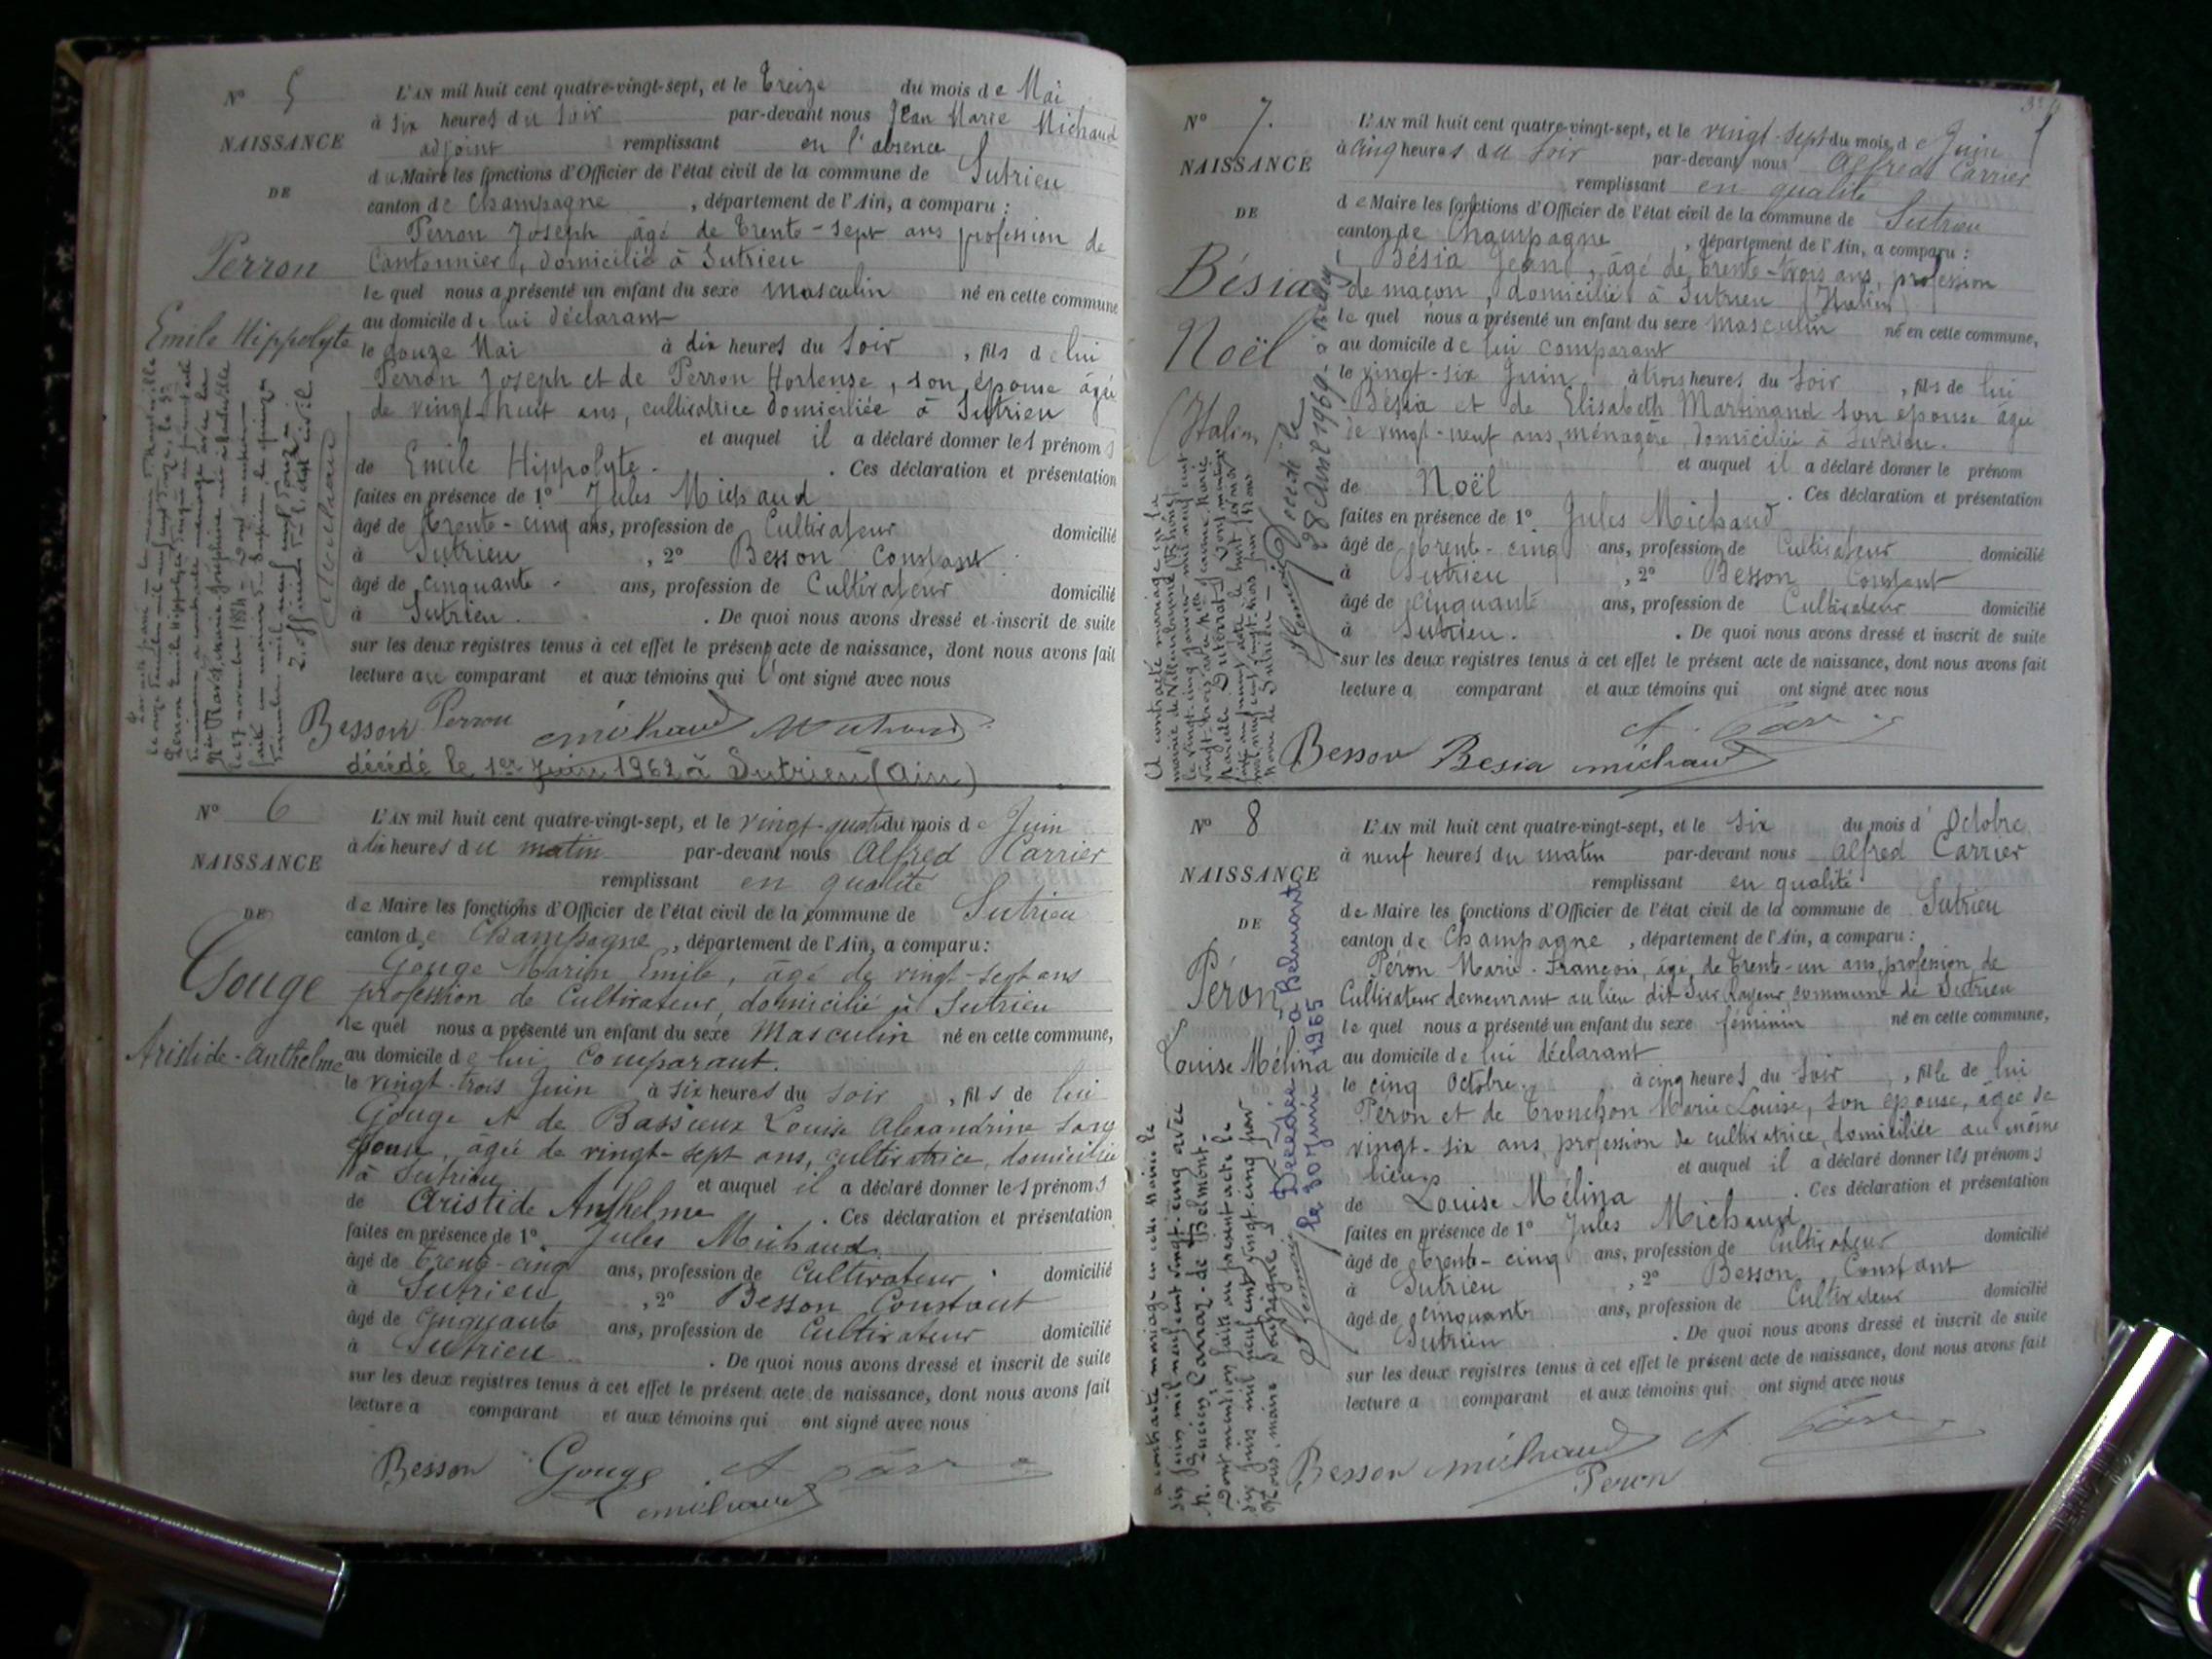 N° 5
NAISSANCE
DE
Perron
Emile Hippolyte
L'AN mil huit cent quatre-vingt-sept, et le treize du mois de Mai
à six heures du soir par-devant nous Jean Marie Michaud
adjoint remplissant en l'absence
du Maire les fonctions d'Officier de l'état civil de la commune de Sutrieu
canton de Champagne, département de l'Ain, a comparu :
Perron Joseph âgé de trente-sept ans profession de
Cantonnier, domicilié à Sutrieu
le quel nous a présenté un enfant du sexe masculin né en cette commune
au domicile de lui déclarant
le douze Mai à dix heures du soir, fils de lui
Perron Joseph et de Perron Hortense, son épouse âgée
de vingt-huit ans, cultivatrice domiciliée à Sutrieu
et auquel il a déclaré donner les prénoms
de Emile Hippolyte. Ces déclaration et présentation
faites en présence de 1° Jules Michaud
âgé de trente-cinq ans, profession de Cultivateur domicilié
à Sutrieu, 2° Besson Constant
âgé de cinquante ans, profession de Cultivateur domicilié
à Sutrieu. De quoi nous avons dressé et inscrit de suite
sur les deux registres tenus à cet effet le présent acte de naissance, dont nous avons fait
lecture au comparant et aux témoins qui l'ont signé avec nous
Besson Perron Michaud Michaud
décédé le 1er Juin 1962 à Sutrieu (Ain)
N° 6
NAISSANCE
DE
Gouge
Aristide-Anthelme
L'AN mil huit cent quatre-vingt-sept, et le vingt-quatre du mois de Juin
à dix heures du matin par-devant nous Alfred Carrier
remplissant en qualité
de Maire les fonctions d'Officier de l'état civil de la commune de Sutrieu
canton de Champagne, département de l'Ain, a comparu :
Gouge Marin Emile, âgé de vingt-sept ans
profession de Cultivateur, domicilié à Sutrieu
le quel nous a présenté un enfant du sexe Masculin né en cette commune,
au domicile de lui comparant.
le vingt-trois Juin à six heures du soir, fils de lui
Gouge et de Bassieux Louise Alexandrine son
épouse, âgée de vingt-sept ans, cultivatrice, domiciliée
à Sutrieu et auquel il a déclaré donner les prénoms
de Aristide Anthelme. Ces déclaration et présentation
faites en présence de 1° Jules Michaud
âgé de trente-cinq ans, profession de Cultivateur, domicilié
à Sutrieu, 2° Besson Constant
âgé de cinquante ans, profession de Cultivateur domicilié
à Sutrieu. De quoi nous avons dressé et inscrit de suite
sur les deux registres tenus à cet effet le présent acte de naissance, dont nous avons fait
lecture a comparant et aux témoins qui ont signé avec nous
Besson Gouge
Michaud
N° 7.
NAISSANCE
DE
Bésia
Noël
(Italien)
Décédé le
28 Avril 1969
L'AN mil huit cent quatre-vingt-sept, et le vingt-sept du mois de Juin
à cinq heures du soir par-devant nous Alfred Carrier
remplissant en qualité
de Maire les fonctions d'Officier de l'état civil de la commune de Sutrieu
canton de Champagne, département de l'Ain, a comparu :
Bésia Jean, âgé de trente-trois ans, profession
de maçon, domicilié à Sutrieu (Italien)
le quel nous a présenté un enfant du sexe masculin né en cette commune,
au domicile de lui comparant
le vingt-six Juin à trois heures du soir, fils de lui
Bésia et de Elisabeth Martinand son épouse âgée
de vingt-neuf ans, ménagère, domiciliée à Sutrieu.
et auquel il a déclaré donner le prénom
de Noël. Ces déclaration et présentation
faites en présence de 1° Jules Michaud
âgé de trente-cinq ans, profession de Cultivateur domicilié
à Sutrieu, 2° Besson Constant
âgé de cinquante ans, profession de Cultivateur domicilié
à Sutrieu. De quoi nous avons dressé et inscrit de suite
sur les deux registres tenus à cet effet le présent acte de naissance, dont nous avons fait
lecture a comparant et aux témoins qui ont signé avec nous
Besson Besia Michaud
N° 8
NAISSANCE
DE
Péron
Louise Mélina
a contracté mariage en cette Mairie le
six Juin mil neuf cent vingt-cinq avec
dont mention faite au présent acte le
six Juin mil neuf cent vingt-cinq par
Nous, maire soussigné
Décédée à Belmont
le 30 juin 1965
L'AN mil huit cent quatre-vingt-sept, et le six du mois d'Octobre
à neuf heures du matin par-devant nous Alfred Carrier
remplissant en qualité
de Maire les fonctions d'Officier de l'état civil de la commune de Sutrieu
canton de Champagne, département de l'Ain, a comparu :
Péron Marie-François, âgé de trente-un ans, profession de
Cultivateur demeurant au lieu dit commune de Sutrieu
le quel nous a présenté un enfant du sexe féminin né en cette commune,
au domicile de lui déclarant
le cinq Octobre à cinq heures du soir, fille de lui
Péron et de Tronchon Marie Louise, son épouse, âgée de
vingt-six ans, profession de cultivatrice, domiciliée au même
lieu et auquel il a déclaré donner les prénoms
de Louise Mélina. Ces déclaration et présentation
faites en présence de 1° Jules Michaud
âgé de trente-cinq ans, profession de Cultivateur domicilié
à Sutrieu, 2° Besson Constant
âgé de cinquante ans, profession de Cultivateur domicilié
à Sutrieu. De quoi nous avons dressé et inscrit de suite
sur les deux registres tenus à cet effet le présent acte de naissance, dont nous avons fait
lecture a comparant et aux témoins qui ont signé avec nous
Besson Michaud
Peron